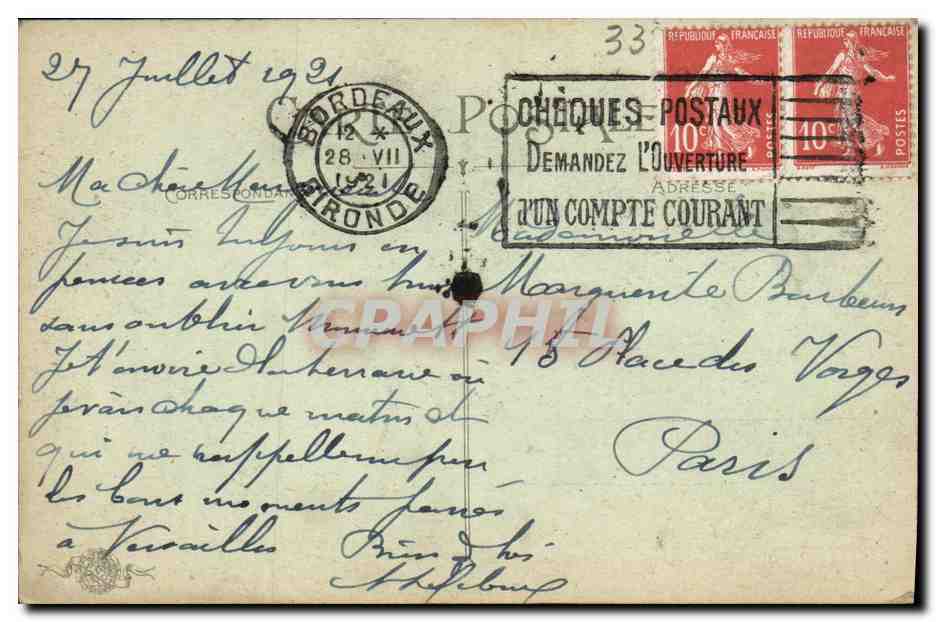 33
27 Juillet 1921
CARTE POSTALE
RÉPUBLIQUE FRANÇAISE
10c
POSTES
RÉPUBLIQUE FRANÇAISE
10c
POSTES
BORDEAUX
12 *
28 · VII
1921
GIRONDE
CHÈQUES POSTAUX
DEMANDEZ L'OUVERTURE
D'UN COMPTE COURANT
CORRESPONDANCE
ADRESSE
Ma chère
Je suis toujours en
pensées avec vous
sans oublier
Je t'envoie la terrasse où
je vais chaque matin et
qui me rappelle un peu
les bons moments passés
à Versailles Bien à toi
Mademoiselle
Marguerite
15 Place des Vosges
Paris
CPAPHIL